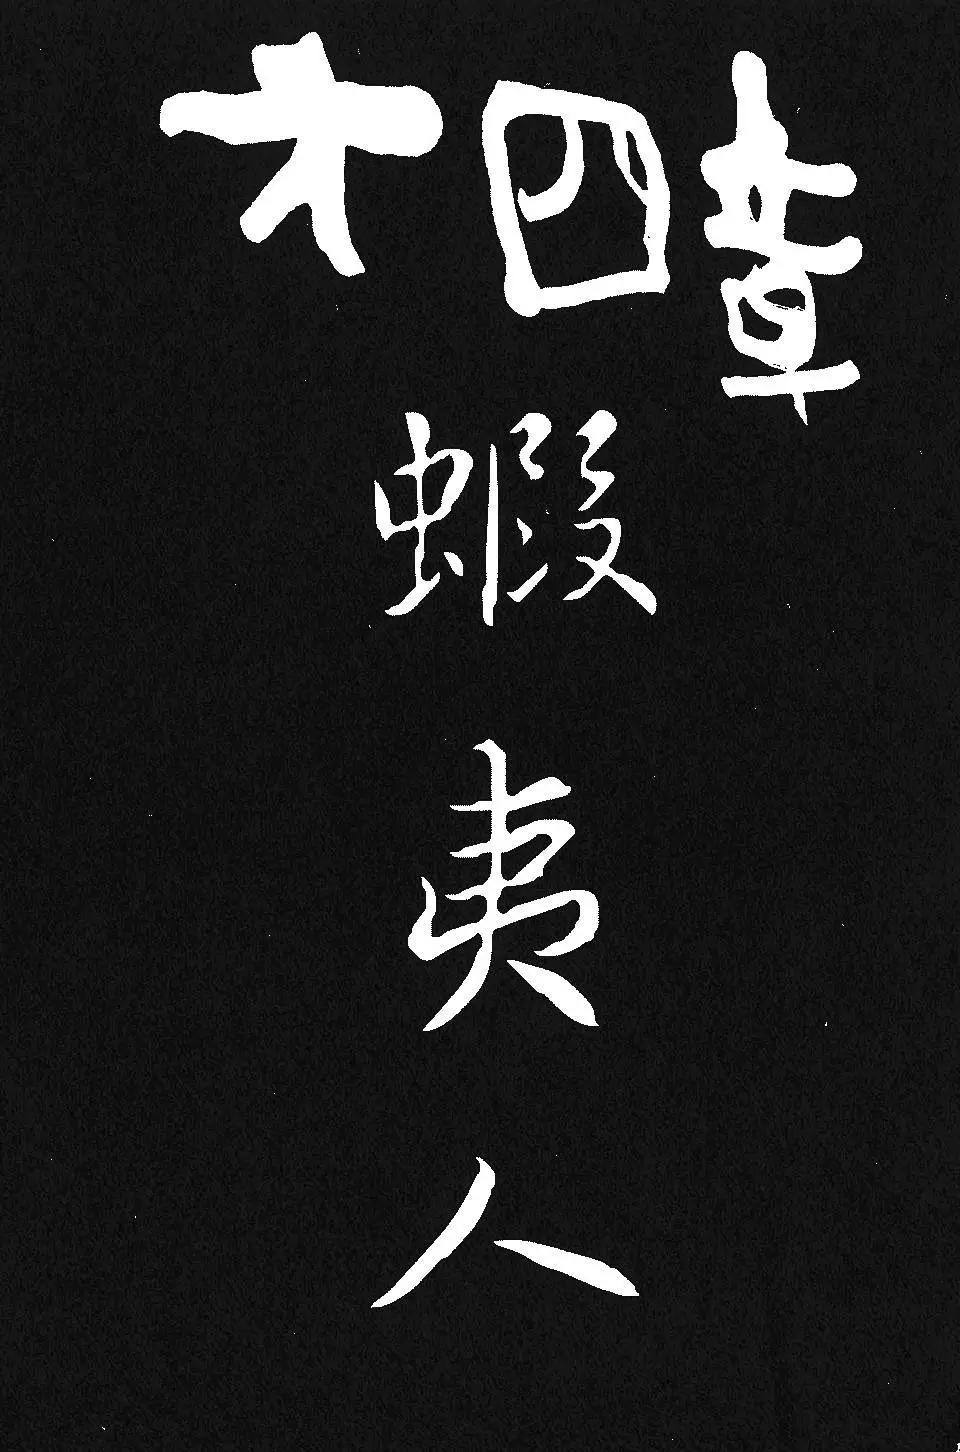 才四章
蝦夷人